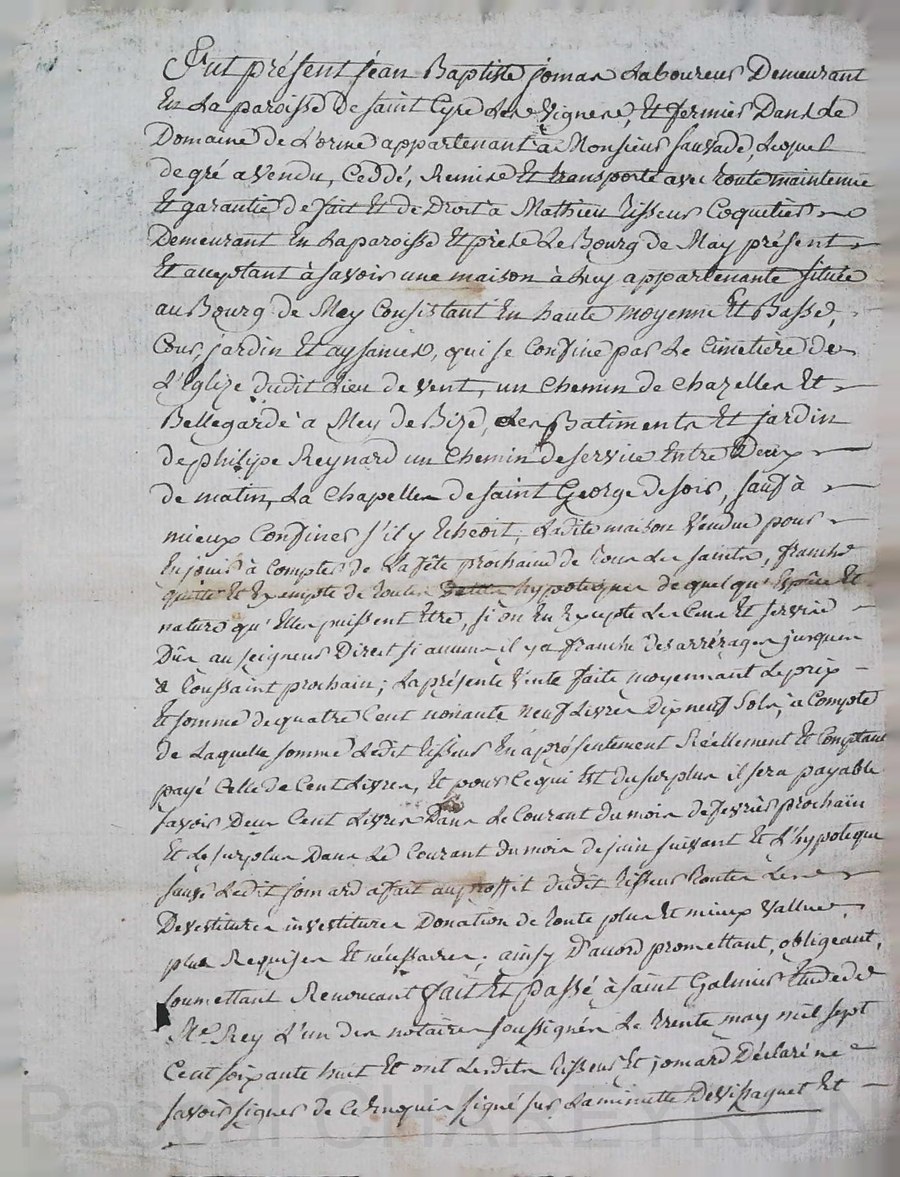 Fut présent jean Baptiste jomar Laboureur Demeurant
En La paroisse de saint Cyre Les Vignere, Et fermier Dans Le
Domaine de L'orme appartenant à Monsieur sauvade, Lequel
de gré a Vendu, Ceddé, Remise Et transporté avec toute maintenue
Et garantie de fait Et de Droit à Mathieu tisseur Coquetier
Demeurant En La paroisse Et près Le Bourg de May présent
Et acceptant à savoir une maison à Luy appartenante située
au Bourg de Mey Consistant En haute moyenne Et Basse,
Cour, jardin Et aysances, qui se Confine par Le Cimetière de
L'Eglize dudit Lieu de vent, un Chemin de Chazelles Et
Bellegarde à Mey de Bize, Les Batiments Et jardin
de philipe Reynard un Chemin de service Entre Deux
de matin, La Chapelle de saint George de soir, sauf à
mieux Confiner s'il y Echeoit, Ladite maison Vendue pour
En jouir à Compter de La fête prochaine de tous Les saints, franche
quitte Et Exempte de toutes hypoteques de quelqu' Espèce Et
nature qu'Elles puissent Etre, si on En Excepte Les Cens Et servis
Dûs au seigneur Direct si aucun il y a franche des arrérages jusques
à toussaint prochain; La présente Vente faite moyennant Le prix
Et somme de quatre Cent nonante neuf Livres Dix neuf sols, à Compte
de Laquelle somme Ledit tisseur En a présentement Réellement Et Comptant
payé Celle de Cent Livres, Et pour Ce qui Est du surplus il sera payable
savoir Deux Cent Livres Dans Le Courant du mois de fevrier prochain
Et Le surplus Dans Le Courant du mois de juin suivant Et L'hypoteque
sauve Ledit jomard a fait au proffit dudit tisseur toutes Les
Devestitures investitures Donation de toute plus Et mieux Vallue
plus Requises Et nécessaires; ainsy D'accord promettant, obligeant,
soumettant Renoncant fait Et passé à saint Galmier Etude de
Me. Rey L'un des notaires soussignés Le trente may mil sept
Cent soixante huit Et ont Lesdits tisseur Et jomard Déclaré ne
savoir signer de Ce Enquis signé sur La minutte Devissaguet Et
Pascal CHAREYRON